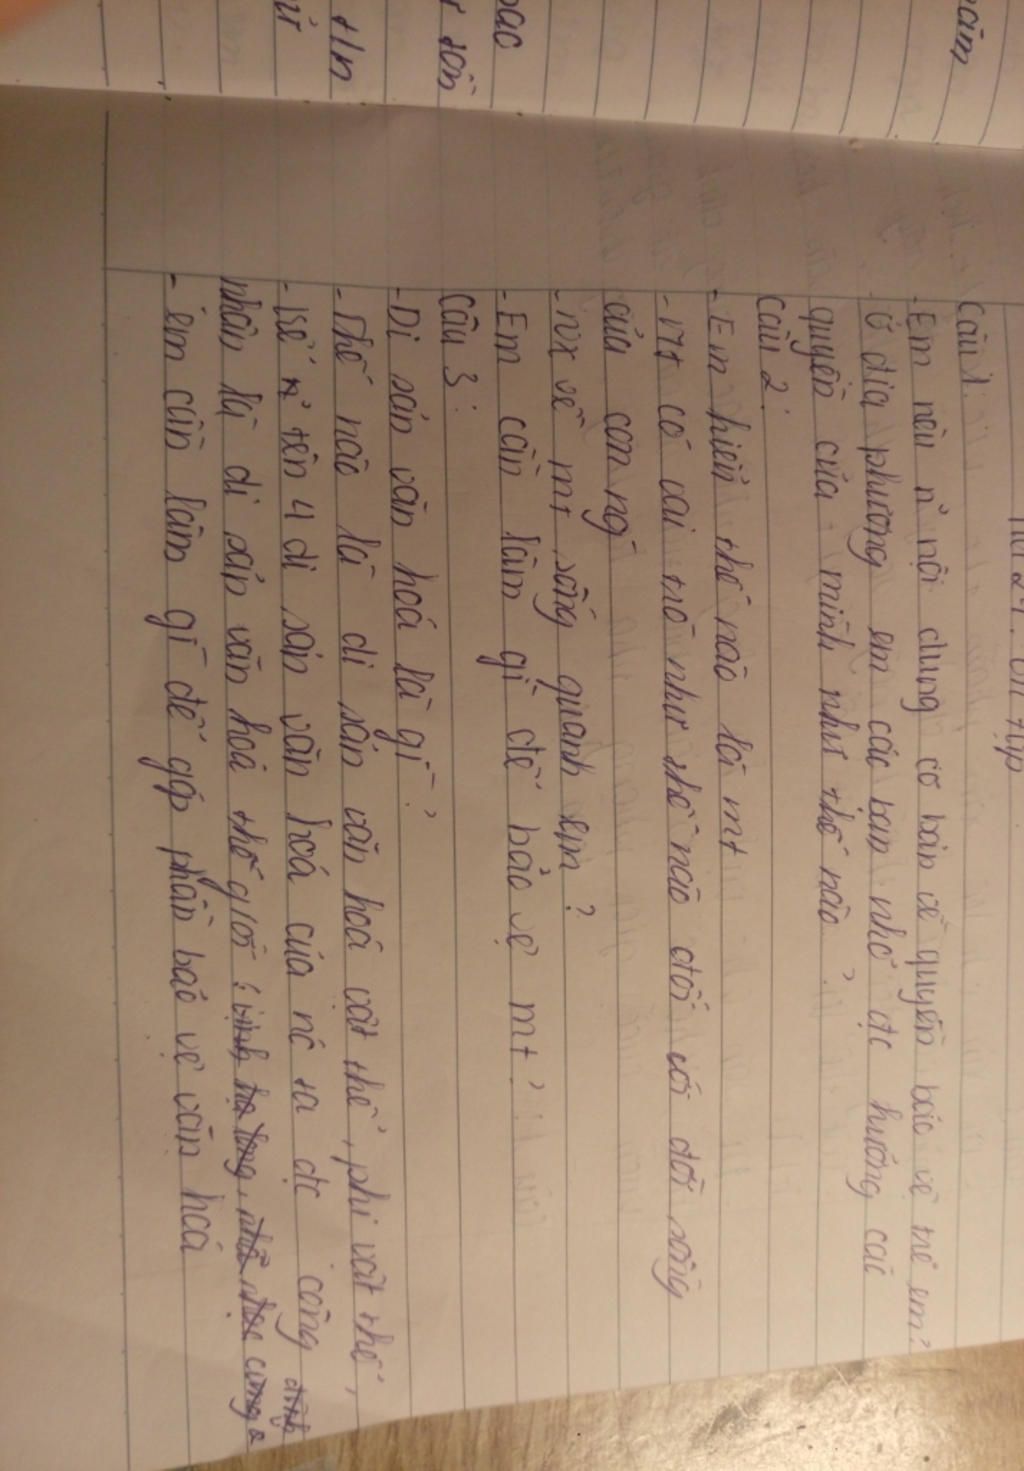 ôn tập
Câu 1:
- Em nêu n~ nội dung cơ bản về quyền bảo vệ trẻ em?
- Ở địa phương em các bạn nhỏ đc hưởng các
quyền của mình như thế nào?
Câu 2:
- Em hiểu thế nào là mt
- mt có vai trò như thế nào đối với đời sống
của con ng`
- nx về mt sống quanh em?
- Em cần làm gì để bảo vệ mt?
Câu 3:
- Di sản văn hoá là gì?
- Thế nào là di sản văn hoá vật thể, phi vật thể,
- Kể tên 4 di sản văn hoá của nc ta đc công
nhận là di sản văn hoá thế giới:
- em cần làm gì để góp phần bảo vệ văn hoá
bạc
tồn
t/n